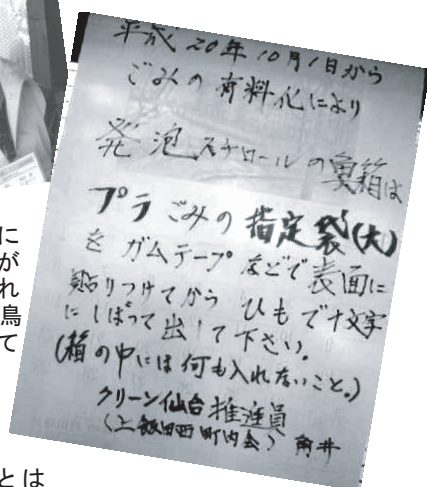 平成20年10月1日から
ごみの有料化により
発泡スチロールの魚箱は
プラごみの指定袋(大)
を ガムテープなどで表面に
貼りつけてから ひもで十文字
にしばって出して下さい。
(箱の中には何も入れないこと。)
クリーン仙台推進員
(上飯田西町内会) 角井
に
が
れ
鳥
て
とは